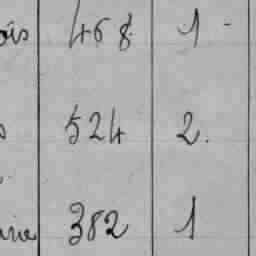 ois 468 1 -
524 2.
382 1